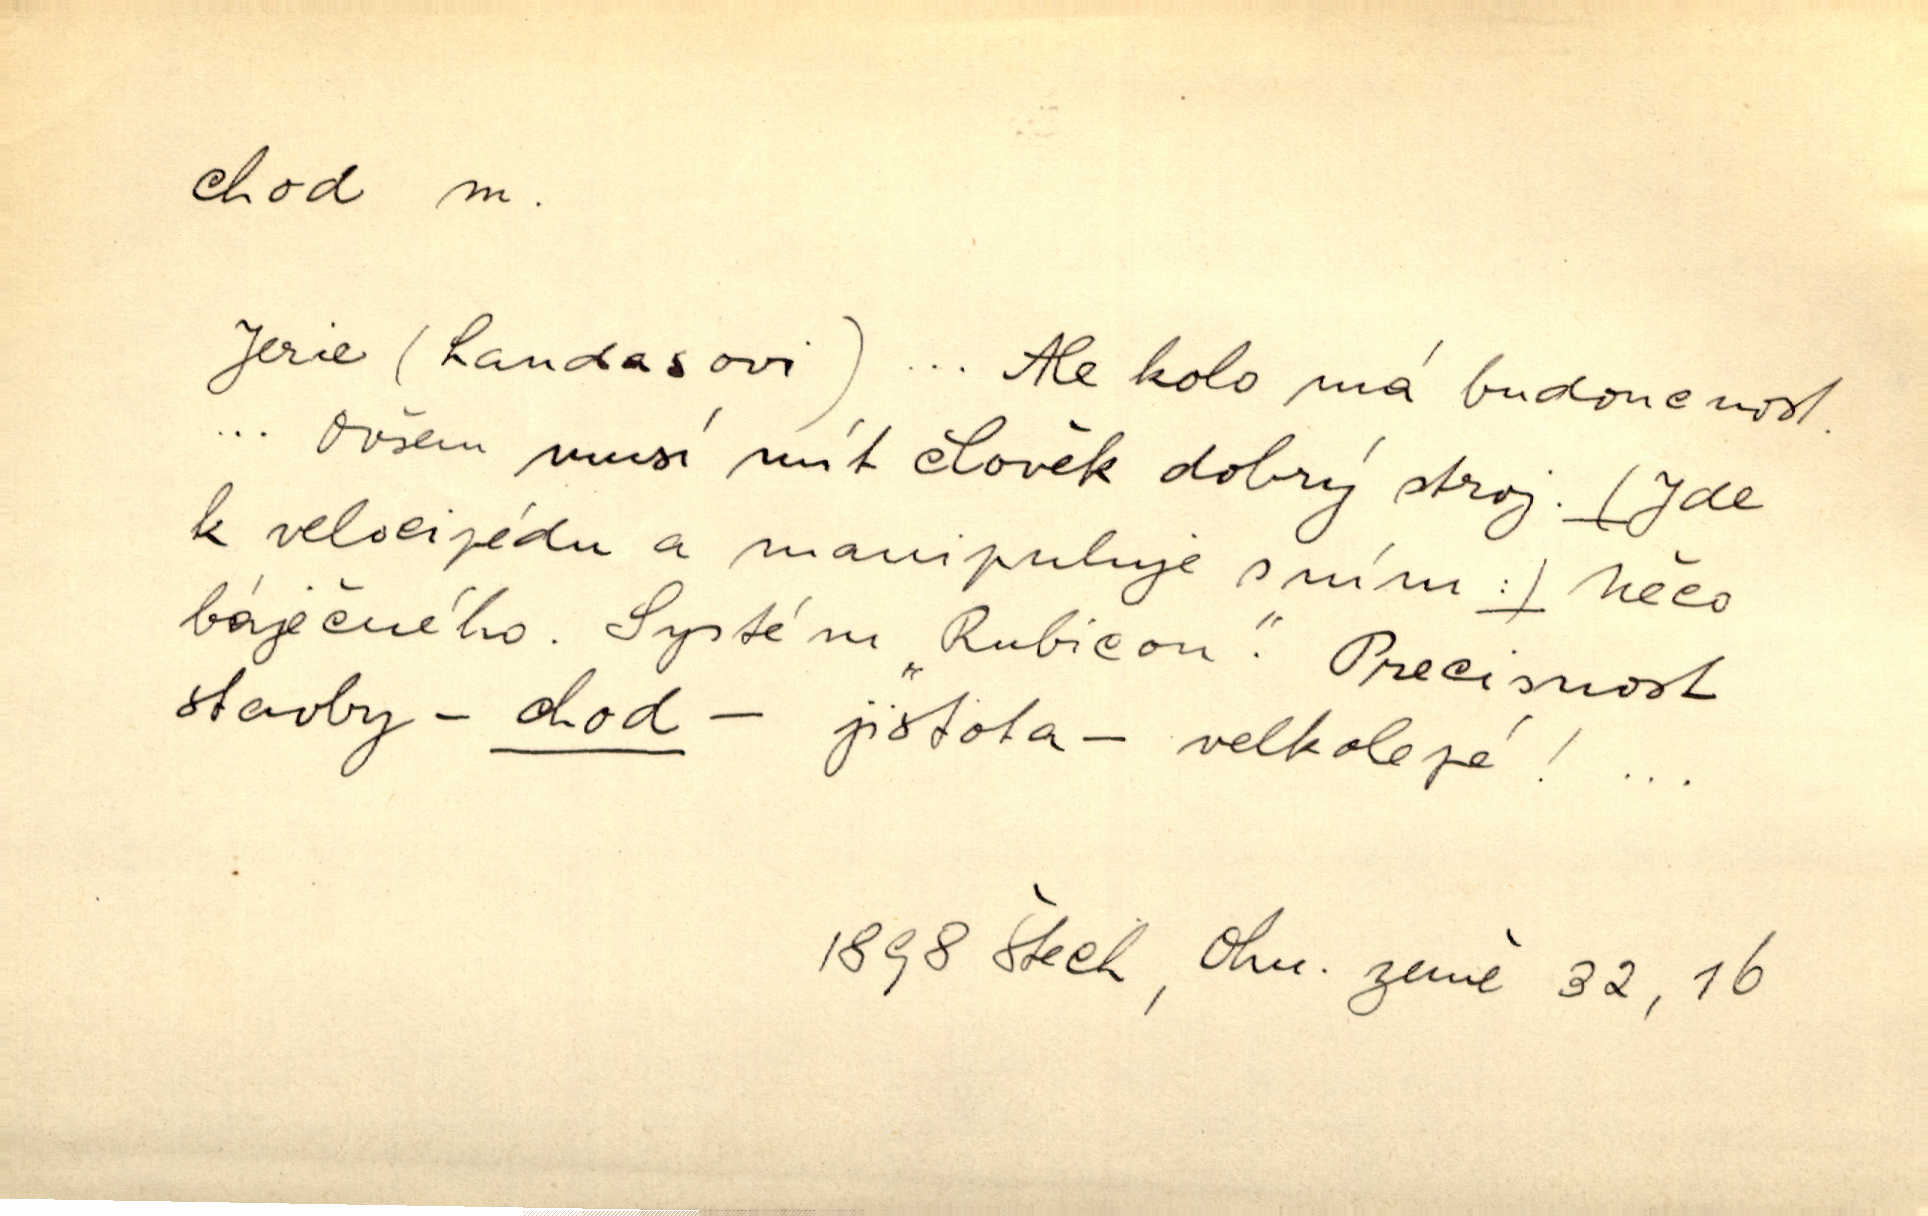 chod m.
Jerie (Landasovi) ... Ale kolo má budoucnost.
... Ovšem musí mít člověk dobrý stroj. (Jde
k velocipédu a manipuluje s ním :) Něco
báječného. Systém „Rubicon“. Precisnost
stavby - chod - jistota - velkolepé! ...
1898 Štech, Ohn. země 32, 16